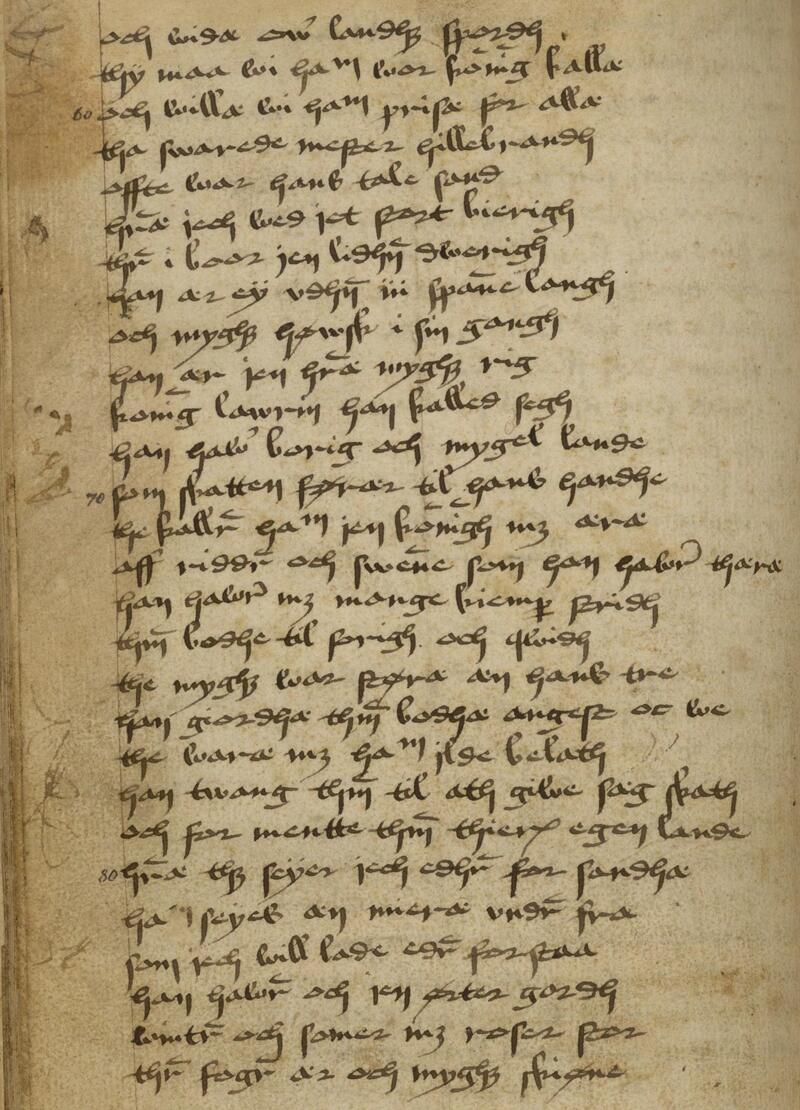 och widæ ow̉ landhꝫ spordh
thy maa wi haᵐ wor kōnīg kallæ
60 och willæ wi haᵐ prisæ for allæ
tha swarede mester hillebrandh
offte war hans tale sand
hr̄æ jech wed jet stort bierigh
thr̄ i boor jen lidhn̄ dwerigh
han ær ey vdhn̄ iii span̄e langh
och myghꝫ høwsk i sin gangh
han ær jen hr̄æ myghꝫ rig
konīg lawrin han kalled segh
han haw̉ borig och mygel lande
70 som skatten førær til hans handhe
the kallr̄ haᵐ jen kōnīgh mꝫ æræ
aff riddr̄ och swen̄e som han hawr̉ thæræ
han hawr̉ mꝫ mange kiemꝑ stridh
thm̄ bodhe til sorigh och qwidh
the myghꝫ war støræ æn hans tre
han giordhæ thm̄ bodhæ angest oc we
the waræ mꝫ haᵐ ilde belath
han twang thm̄ til ath giwe sag skath
och for mentte thm̄ thierꝭ egen lande
80 hr̄æ thꝫ seyer jech edhr̄ for sandhæ
ha seyes æn mieræ vndr̄ fra
som jech will lade edr̄ forstaa
han hawr̄ och jen ørter gordh
wintr̄ och somer mꝫ roser stor
thr̄ fagr̄ ær och myghꝫ skiøne